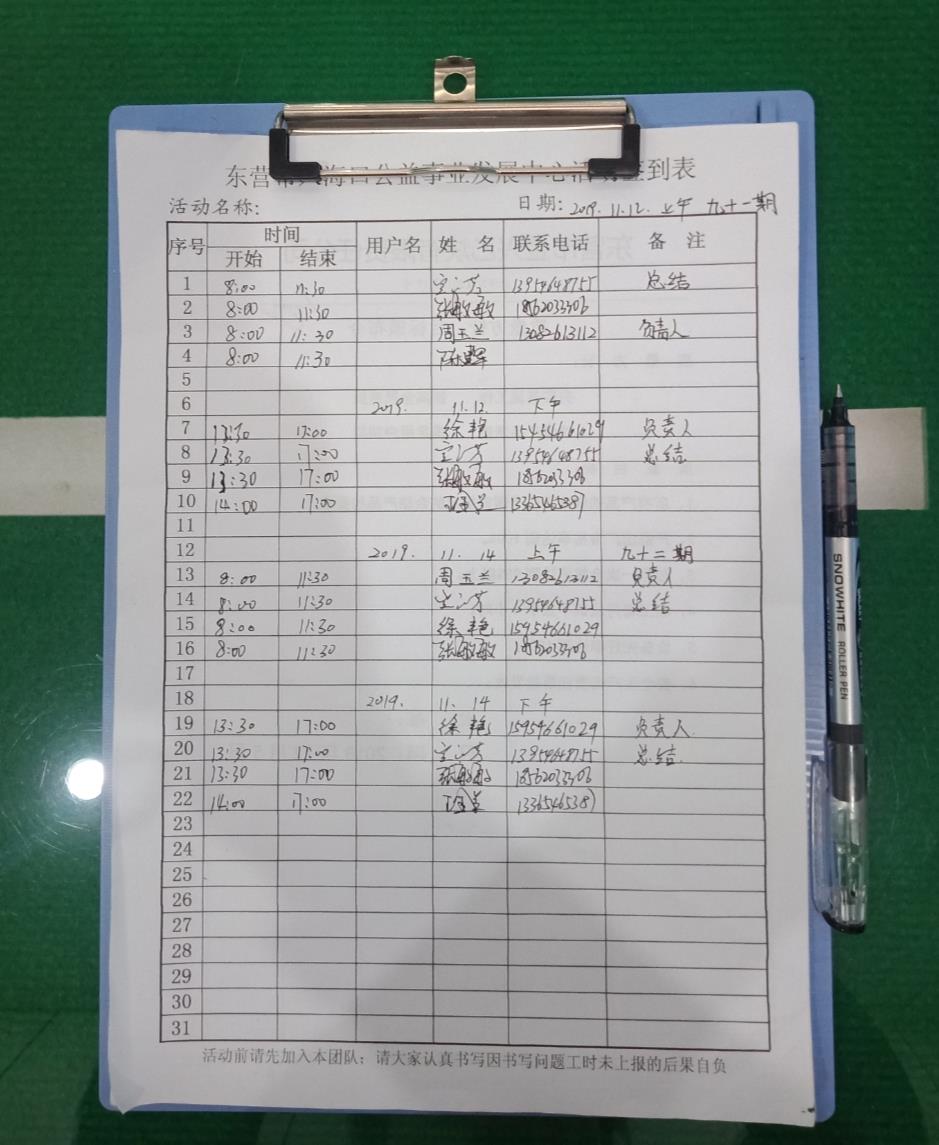 东营市 海口公益事业发展中心活动签到表
活动名称: 日期: 2019. 11.12. 上午 九十一期
序号 时间 用户名 姓 名 联系电话 备 注
开始 结束
1 8:00 11:30 13954648755 总结
2 8:00 11:30 张敏敏 18562033306
3 8:00 11:30 周玉兰 13082613112 负责人
4 8:00 11:30
5
6 2019. 11.12. 下午
7 13:30 17:00 徐艳 15454661029 负责人
8 13:30 17:00 13954648755 总结
9 13:30 17:00 张敏敏 18562033306
10 14:00 17:00 13365465387
11
12 2019. 11. 14 上午 九十二期
13 8:00 11:30 周玉兰 13082613112 负责人
14 8:00 11:30 13954648755 总结
15 8:00 11:30 徐艳 15954661029
16 8:00 11:30 张敏敏 18562033306
17
18 2019. 11. 14 下午
19 13:30 17:00 徐艳 15954661029 负责人
20 13:30 17:00 13954648755 总结
21 13:30 17:00 张敏敏 18562033306
22 14:00 17:00 13365465387
23
24
25
26
27
28
29
30
31
活动前请先加入本团队；请大家认真书写因书写问题工时未上报的后果自负
SNOWHITE ROLLER PEN